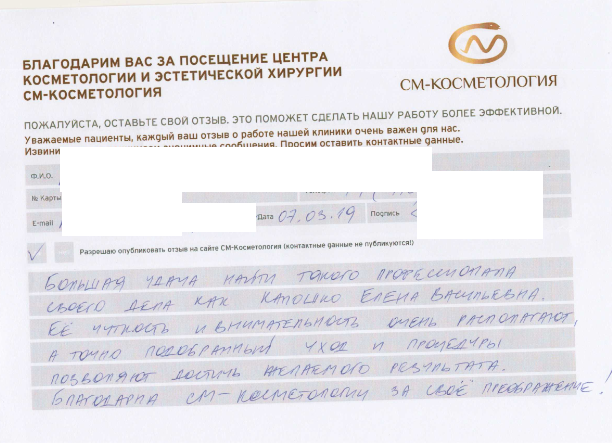 БЛАГОДАРИМ ВАС ЗА ПОСЕЩЕНИЕ ЦЕНТРА
КОСМЕТОЛОГИИ И ЭСТЕТИЧЕСКОЙ ХИРУРГИИ
СМ-КОСМЕТОЛОГИЯ
СМ-КОСМЕТОЛОГИЯ
ПОЖАЛУЙСТА, ОСТАВЬТЕ СВОЙ ОТЗЫВ. ЭТО ПОМОЖЕТ СДЕЛАТЬ НАШУ РАБОТУ БОЛЕЕ ЭФФЕКТИВНОЙ.
Уважаемые пациенты, каждый ваш отзыв о работе нашей клиники очень важен для нас.
сообщения. Просим оставить контактные данные.
Ф.И.О.
№ Карты
E-mail Дата 07.03.19 Подпись
Разрешаю опубликовать отзыв на сайте СМ-Косметология (контактные данные не публикуются!)
БОЛЬШАЯ УДАЧА НАЙТИ ТАКОГО ПРОФЕССИОНАЛА
СВОЕГО ДЕЛА КАК КАПОШКО ЕЛЕНА ВАСИЛЬЕВНА.
ЕЁ ЧУТКОСТЬ И ВНИМАТЕЛЬНОСТЬ ОЧЕНЬ РАСПОЛАГАЮТ,
А ТОЧНО ПОДОБРАННЫЙ УХОД И ПРОЦЕДУРЫ
ПОЗВОЛЯЮТ ДОСТИЧЬ ЖЕЛАЕМОГО РЕЗУЛЬТАТА.
БЛАГОДАРНА СМ-КОСМЕТОЛОГИИ ЗА СВОЁ ПРЕОБРАЖЕНИЕ!